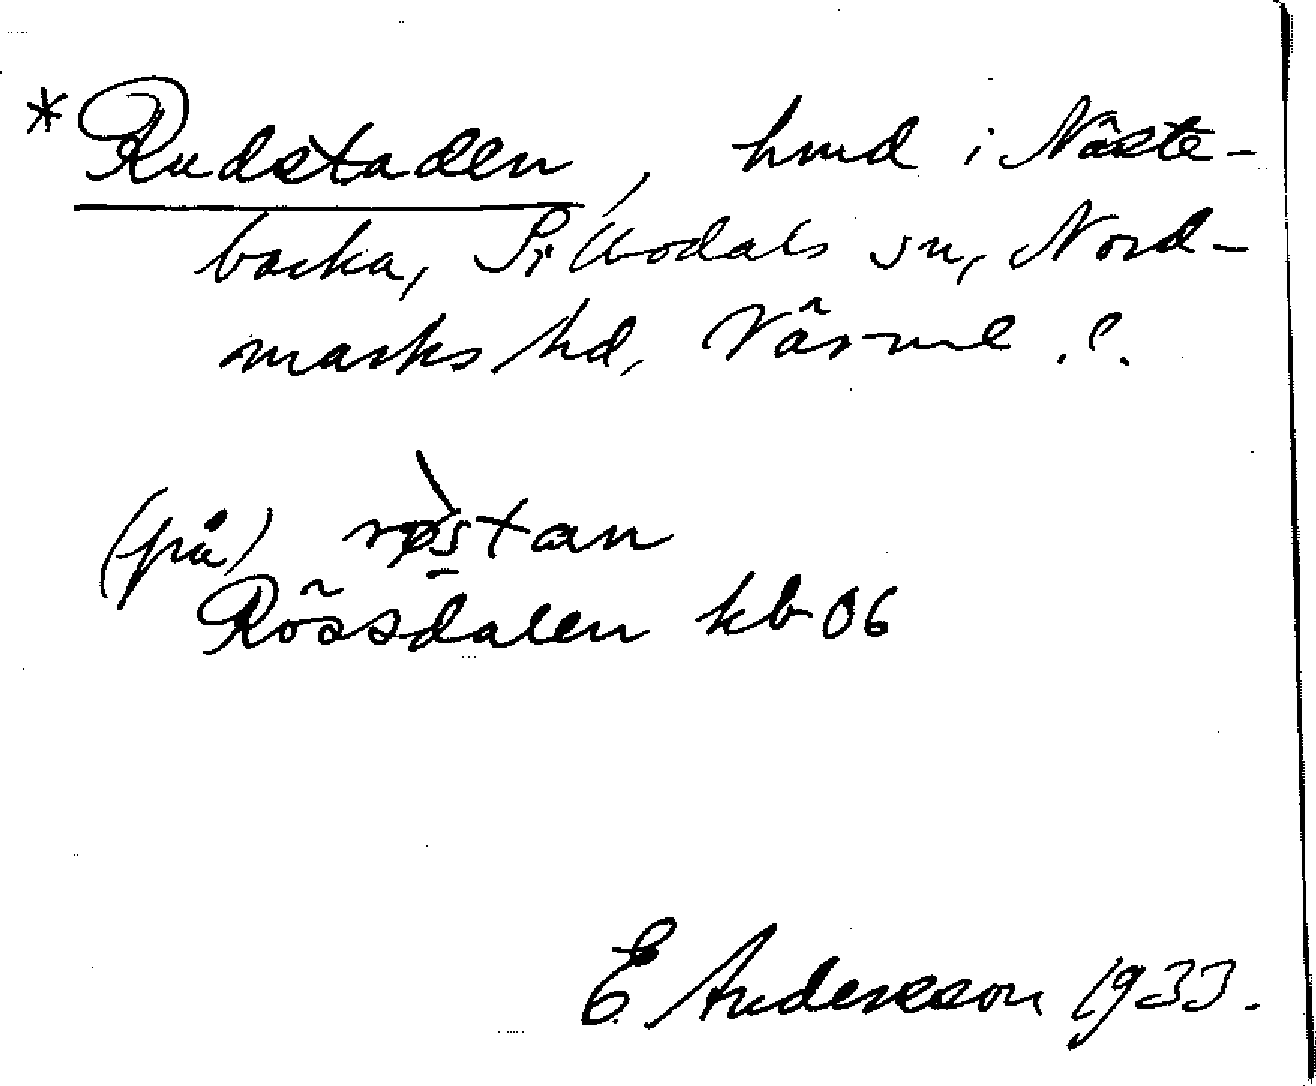 *Rudstaden, hmd i Näste-
backa, Sillbodals sn, Nord-
marks hd, Värml.
(på) ròstan
Rössdalen kb 06
E Andersson 1933.